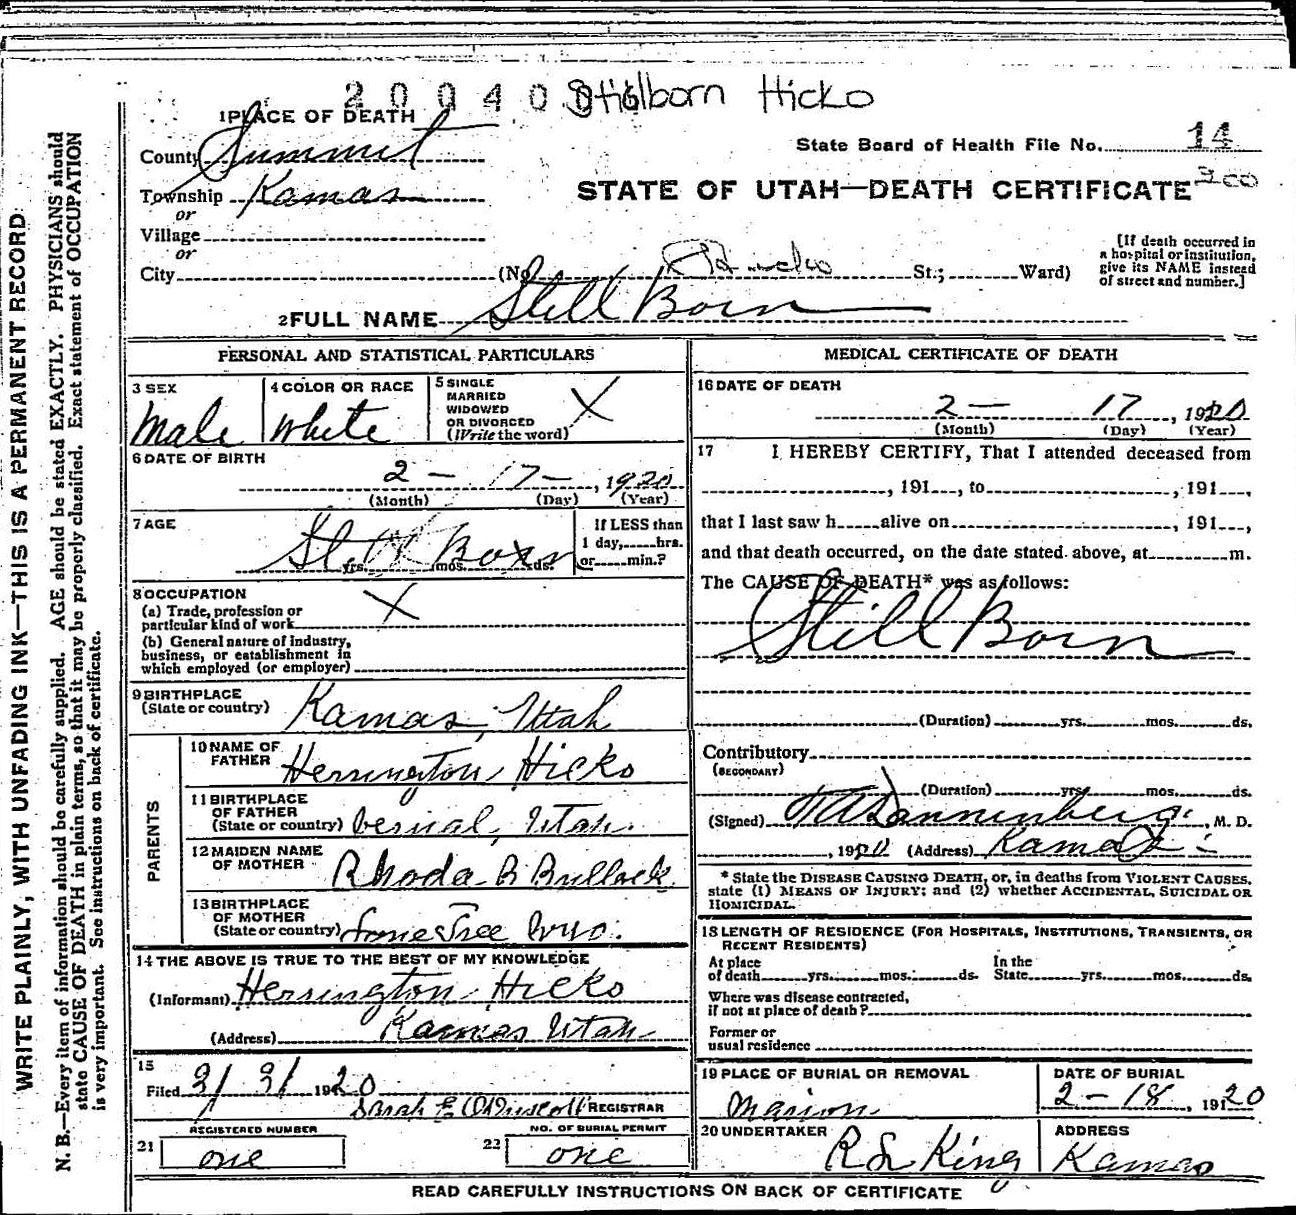 2 0 0 4 0 Stillborn Hicks
1 PLACE OF DEATH
County Summit
State Board of Health File No. 14
Township Kamas
STATE OF UTAH—DEATH CERTIFICATE 300
or
Village
or
City (No. Hicks St.; Ward)
[If death occurred in
a hospital or institution,
give its NAME instead
of street and number.]
2 FULL NAME Still Born
PERSONAL AND STATISTICAL PARTICULARS
3 SEX
Male
4 COLOR OR RACE
White
5 SINGLE
MARRIED
WIDOWED
OR DIVORCED
(Write the word) X
6 DATE OF BIRTH
2 — 17 — , 1920
(Month) (Day) (Year)
7 AGE
Still Born
yrs. mos. ds.
If LESS than
1 day, hrs.
or min.?
8 OCCUPATION
(a) Trade, profession or
particular kind of work X
(b) General nature of industry,
business, or establishment in
which employed (or employer)
9 BIRTHPLACE
(State or country) Kamas, Utah
PARENTS
10 NAME OF
FATHER Herrington Hicks
11 BIRTHPLACE
OF FATHER
(State or country) Vernal, Utah.
12 MAIDEN NAME
OF MOTHER Rhoda B Bullock
13 BIRTHPLACE
OF MOTHER
(State or country) Lonetree Wyo.
14 THE ABOVE IS TRUE TO THE BEST OF MY KNOWLEDGE
(Informant) Herrington Hicks
(Address) Kamas Utah
15
Filed 3/31 1920
Sarah E O'Driscoll REGISTRAR
REGISTERED NUMBER
21 one
NO. OF BURIAL PERMIT
22 one
MEDICAL CERTIFICATE OF DEATH
16 DATE OF DEATH
2 — 17 , 1920
(Month) (Day) (Year)
17 I HEREBY CERTIFY, That I attended deceased from
, 191 , to , 191 ,
that I last saw h alive on , 191 ,
and that death occurred, on the date stated above, at m.
The CAUSE OF DEATH* was as follows:
Still Born
(Duration) yrs. mos. ds.
Contributory
(SECONDARY)
(Duration) yrs. mos. ds.
(Signed) Dannenberg, M. D.
, 1920 (Address) Kamas
* State the DISEASE CAUSING DEATH, or, in deaths from VIOLENT CAUSES,
state (1) MEANS OF INJURY; and (2) whether ACCIDENTAL, SUICIDAL OR
HOMICIDAL.
18 LENGTH OF RESIDENCE (FOR HOSPITALS, INSTITUTIONS, TRANSIENTS, OR
RECENT RESIDENTS)
At place
of death yrs. mos. ds.
In the
State yrs. mos. ds.
Where was disease contracted,
if not at place of death?
Former or
usual residence
19 PLACE OF BURIAL OR REMOVAL
Marion
DATE OF BURIAL
2 – 18 , 1920
20 UNDERTAKER
R L King
ADDRESS
Kamas
READ CAREFULLY INSTRUCTIONS ON BACK OF CERTIFICATE
WRITE PLAINLY, WITH UNFADING INK—THIS IS A PERMANENT RECORD
N. B.—Every item of information should be carefully supplied. AGE should be stated EXACTLY. PHYSICIANS should
state CAUSE OF DEATH in plain terms, so that it may be properly classified. Exact statement of OCCUPATION
is very important. See instructions on back of certificate.